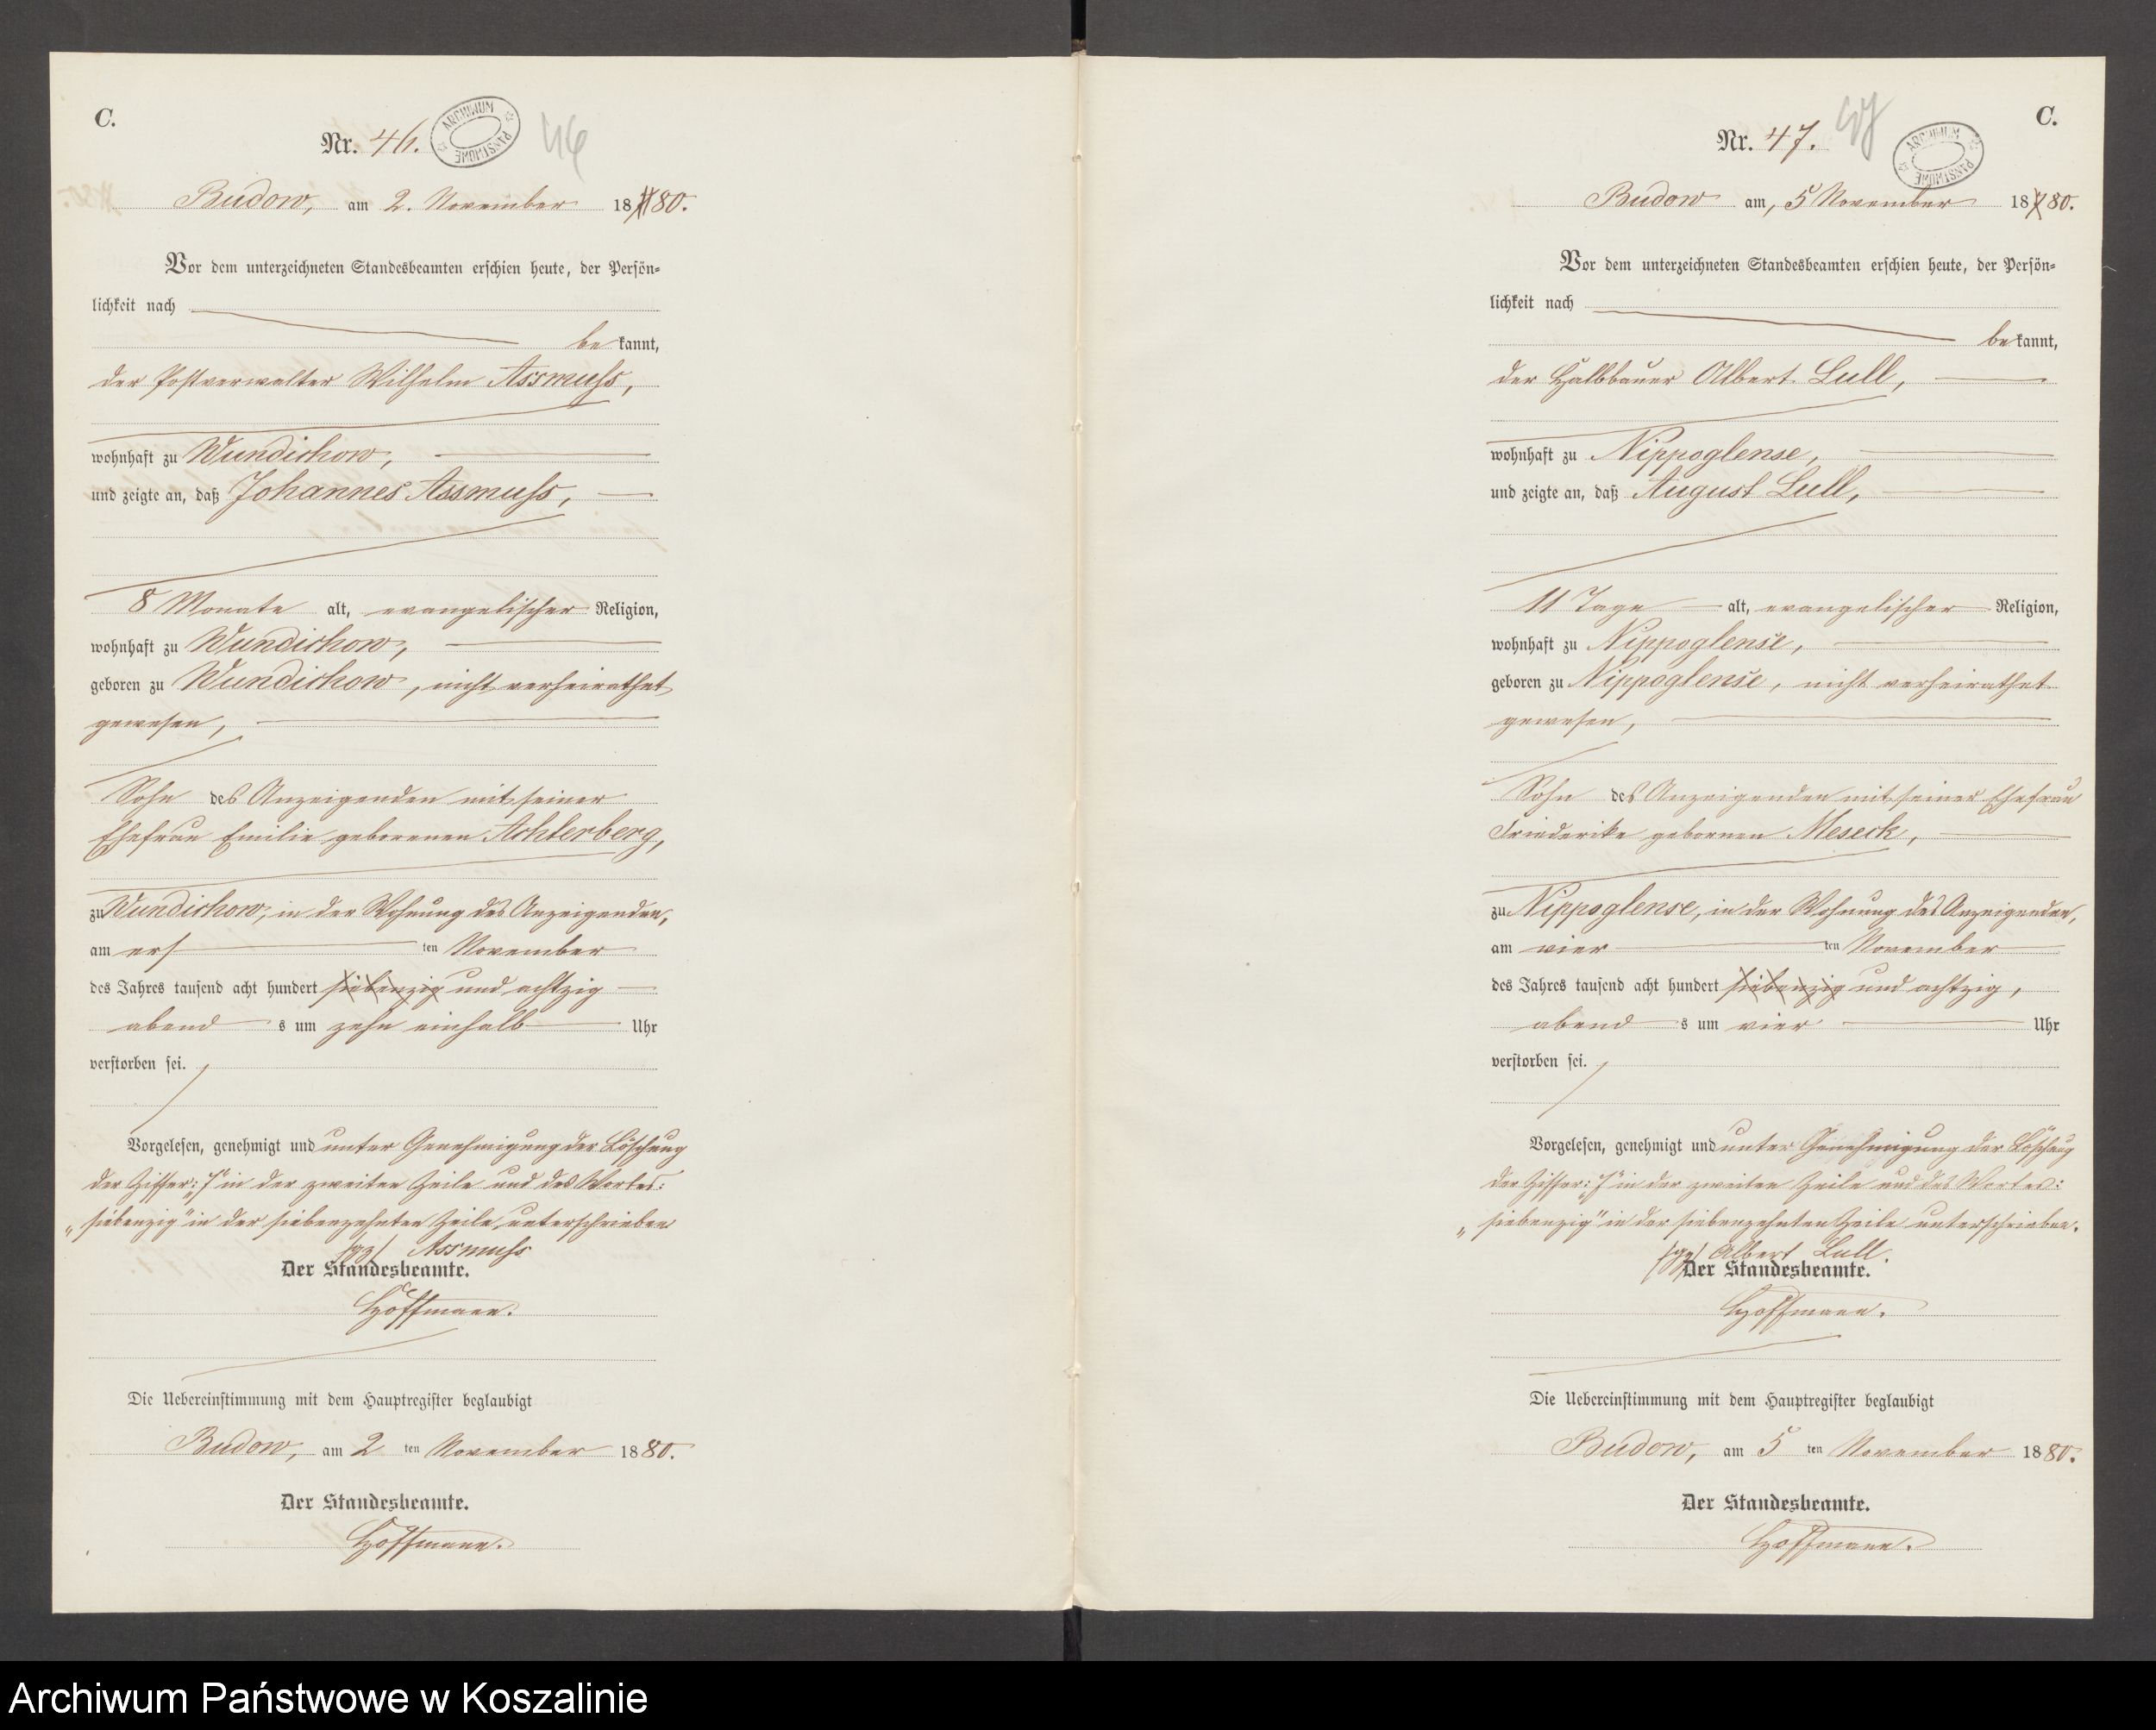 C.
Nr. 46.
ARCHIWUM PAŃSTWOWE
46
Budow, am 2. November 18780.
Vor dem unterzeichneten Standesbeamten erschien heute, der Persön-
lichkeit nach
bekannt,
der Postverwalter Wilhelm Assmuss,
wohnhaft zu Wundichow,
und zeigte an, daß Johannes Assmuss,
8 Monate alt, evangelischer Religion,
wohnhaft zu Wundichow,
geboren zu Wundichow, nicht verheirathet
gewesen,
Sohn des Anzeigenden mit seiner
Ehefrau Emilie geborenen Achterberg,
zu Wundichow, in der Wohnung des Anzeigenden,
am ers ten November
des Jahres tausend acht hundert siebenzig und achtzig
abend s um zehn einhalb Uhr
verstorben sei.
Vorgelesen, genehmigt und unter Genehmigung der Löschung
der Ziffer: „7“ in der zweiten Zeile und des Wortes:
„siebenzig“ in der siebenzehnten Zeile unterschrieben
/gz/ Assmuss
Der Standesbeamte.
Hoffmann.
Die Uebereinstimmung mit dem Hauptregister beglaubigt
Budow, am 2 ten November 1880.
Der Standesbeamte.
Hoffmann.
C.
Nr. 47.
47
ARCHIWUM PAŃSTWOWE
Budow am, 5 November 18780.
Vor dem unterzeichneten Standesbeamten erschien heute, der Persön-
lichkeit nach
bekannt,
der Halbbauer Albert Lull,
wohnhaft zu Nippoglense,
und zeigte an, daß August Lull,
11 Tage alt, evangelischer Religion,
wohnhaft zu Nippoglense,
geboren zu Nippoglense, nicht verheirathet
gewesen,
Sohn des Anzeigenden mit seiner Ehefrau
Friederike gebornen Meseck,
zu Nippoglense, in der Wohnung des Anzeigenden,
am vier ten November
des Jahres tausend acht hundert siebenzig und achtzig,
abend s um vier Uhr
verstorben sei.
Vorgelesen, genehmigt und unter Genehmigung der Löschung
der Ziffer: „7“ in der zweiten Zeile und des Wortes:
„siebenzig“ in der siebenzehnten Zeile unterschrieben.
/gz/ Albert Lull.
Der Standesbeamte.
Hoffmann.
Die Uebereinstimmung mit dem Hauptregister beglaubigt
Budow, am 5 ten November 1880.
Der Standesbeamte.
Hoffmann.
Archiwum Państwowe w Koszalinie